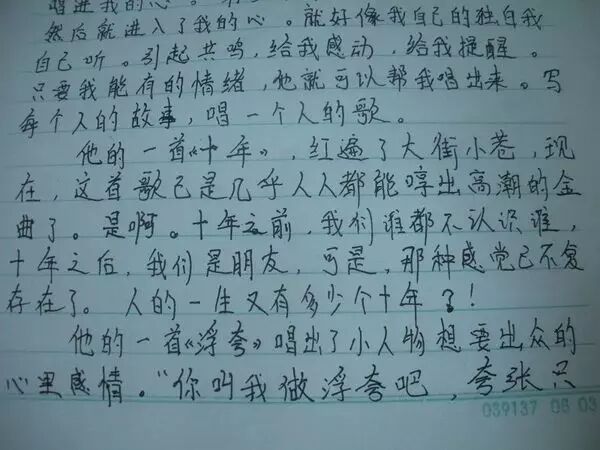 唱进我的心。
然后就进入了我的心。就好像我自己的独白我
自己听。引起共鸣，给我感动，给我提醒。
只要我能有的情绪，他就可以帮我唱出来。写
每个人的故事，唱一个人的歌。
他的一首《十年》，红遍了大街小巷，现
在，这首歌已是几乎人人都能哼出高潮的金
曲了。是啊。十年之前，我们谁都不认识谁，
十年之后，我们是朋友，可是，那种感觉已不复
存在了。人的一生又有多少个十年了！
他的一首《浮夸》唱出了小人物想要出众的
心里感情。“你叫我做浮夸吧，夸张只
039137 06 03